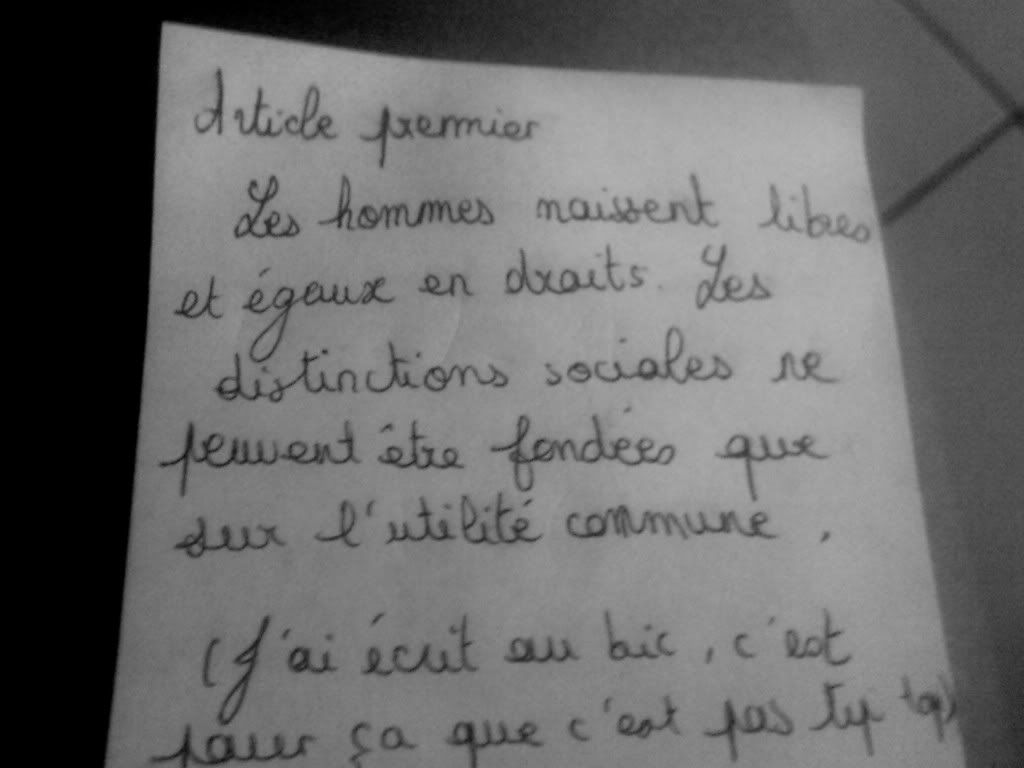 Article premier
Les hommes naissent libres
et égaux en droits. Les
distinctions sociales ne
peuvent être fondées que
sur l'utilité commune.
(J'ai écrit au bic, c'est
pour ça que c'est pas